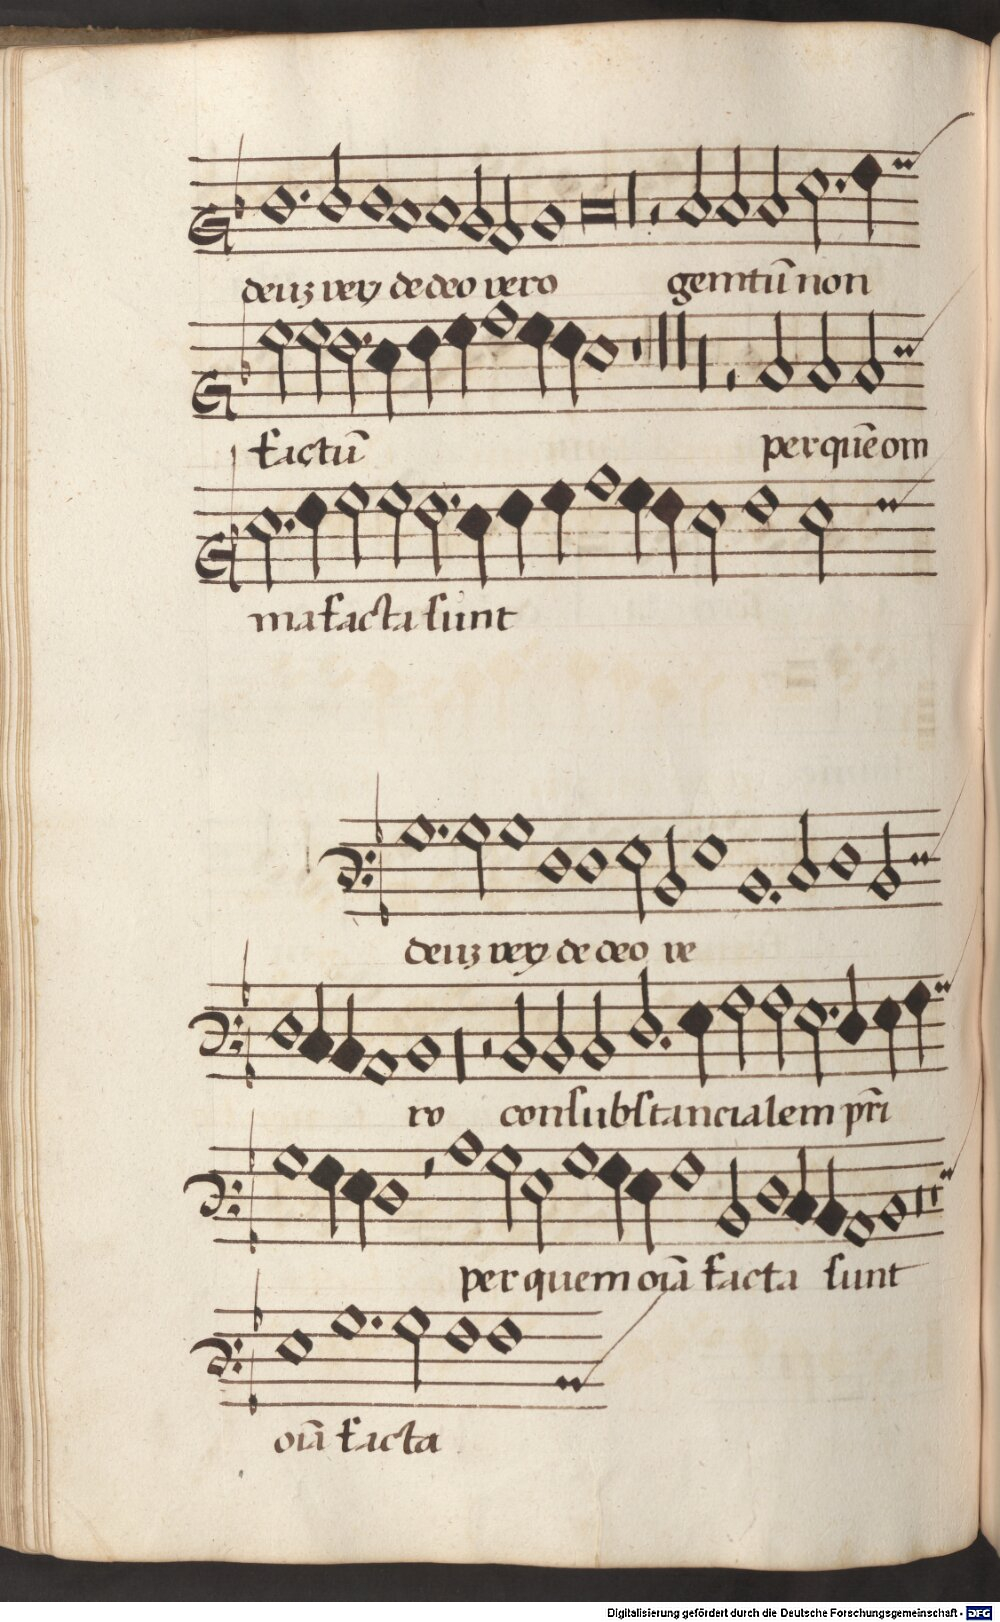 deuz very de deo vero genitū non
factū per quē om
nia facta sunt
deuz very de deo ve
ro consubstancialem pr̄i
per quem oīa facta sunt
oīa facta
Digitalisierung gefördert durch die Deutsche Forschungsgemeinschaft - DFG